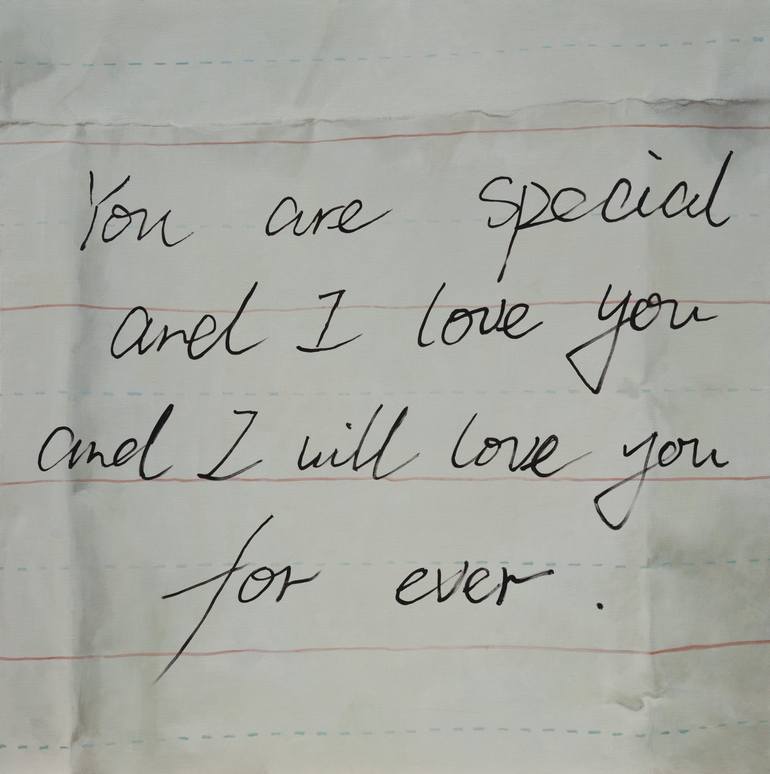 You are special
and I love you
and I will love you
for ever.